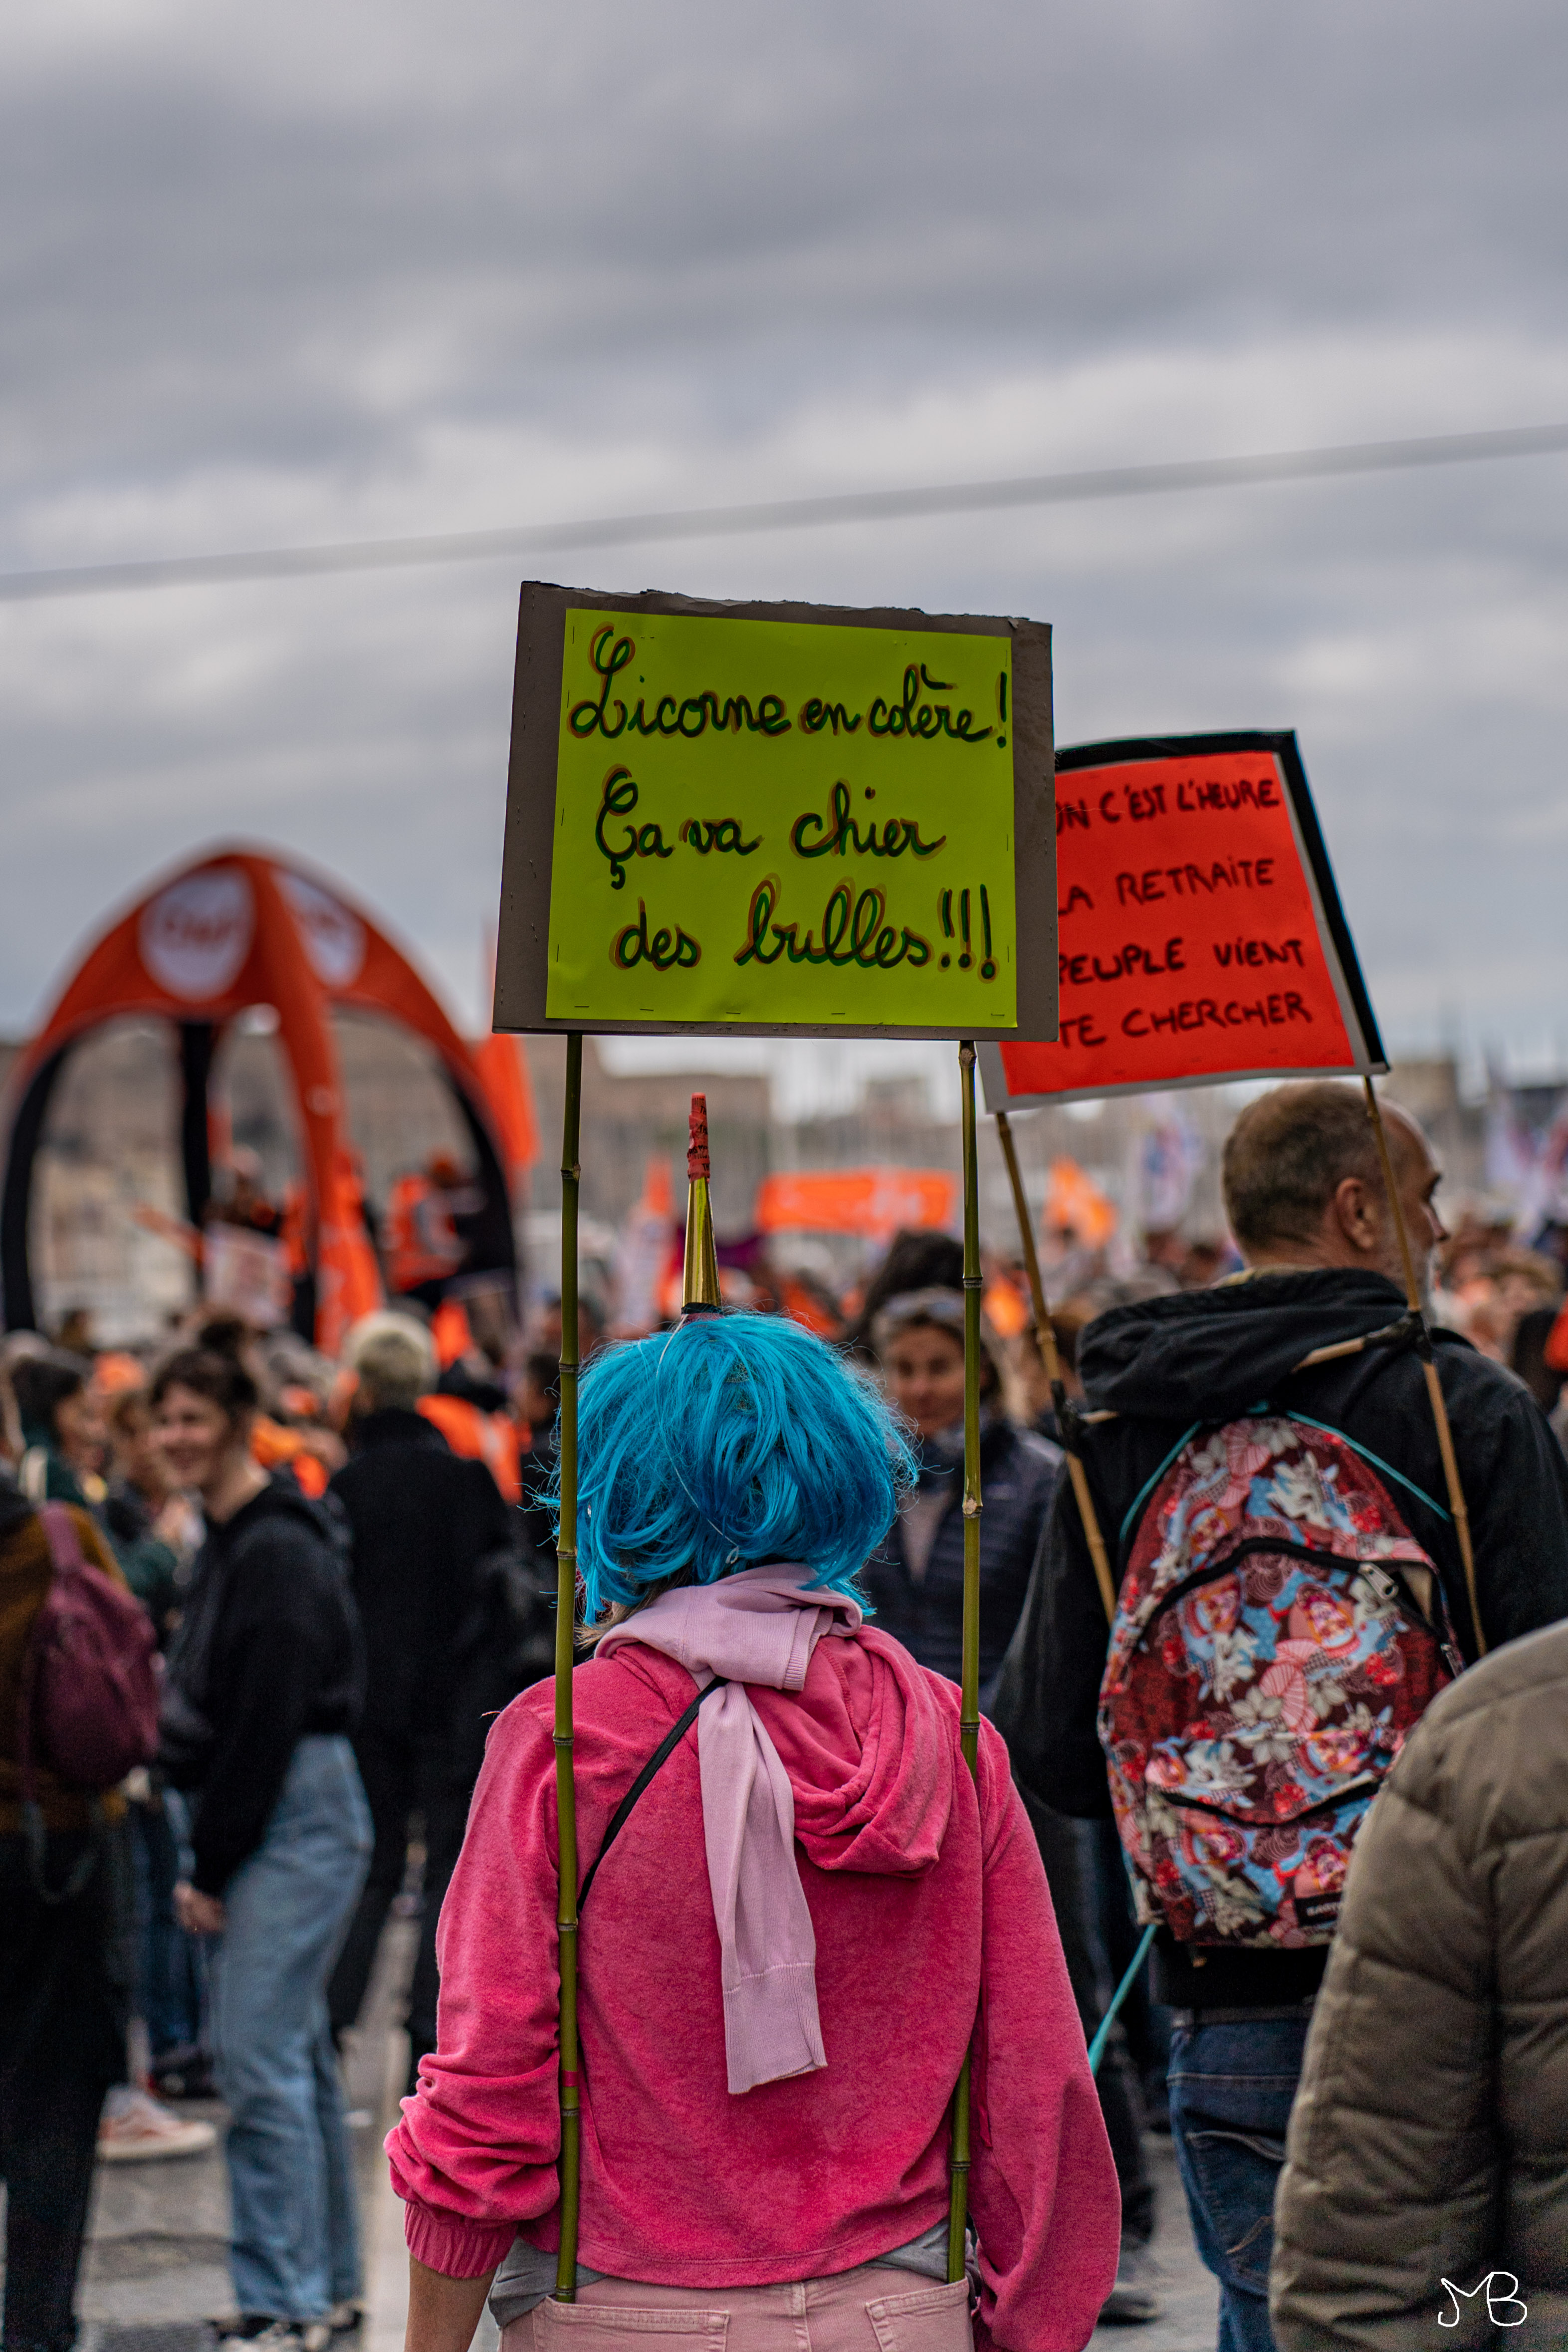 Licorne en colère!
Ça va chier
des bulles!!!
C'EST L'HEURE
LA RETRAITE
PEUPLE VIENT
TE CHERCHER
MB